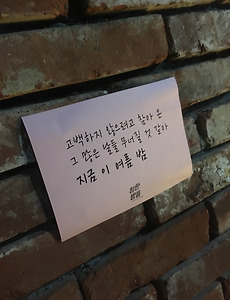 고백하지 않으려고 참아 온
그 많은 날들 무너질 것 같아
지금 이 여름 밤